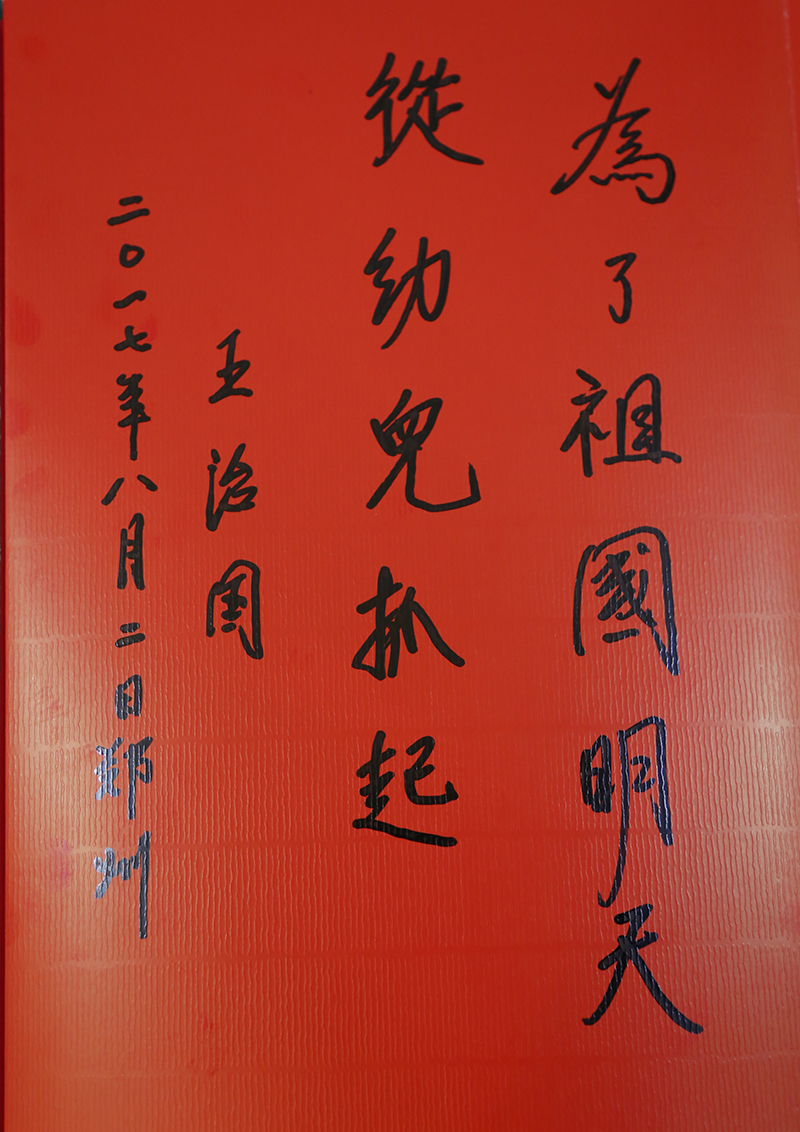 為了祖國明天
從幼兒抓起
王治国
二〇一七年八月二日鄭州